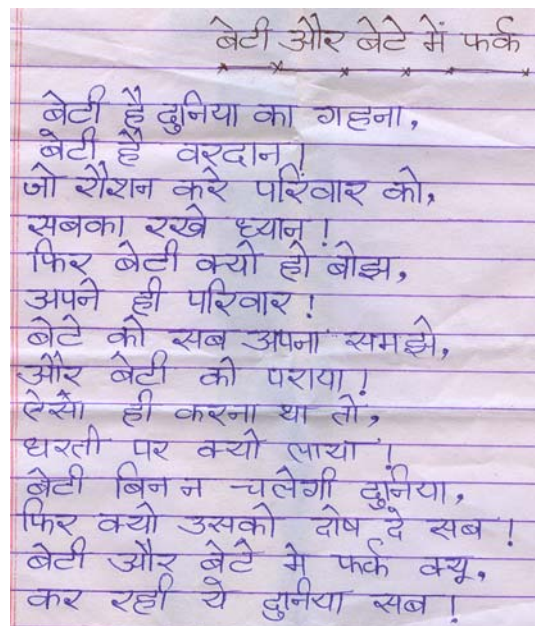 बेटी और बेटे में फर्क
बेटी है दुनिया का गहना,
बेटी है वरदान !
जो रौशन करे परिवार को,
सबका रखे ध्यान !
फिर बेटी क्यो हो बोझ,
अपने ही परिवार !
बेटे को सब अपना समझे,
और बेटी को पराया !
ऐसा ही करना था तो,
धरती पर क्यो लाया !
बेटी बिन न चलेगी दुनिया,
फिर क्यो उसको दोष दे सब !
बेटी और बेटे मे फर्क क्यू,
कर रही ये दुनिया सब !